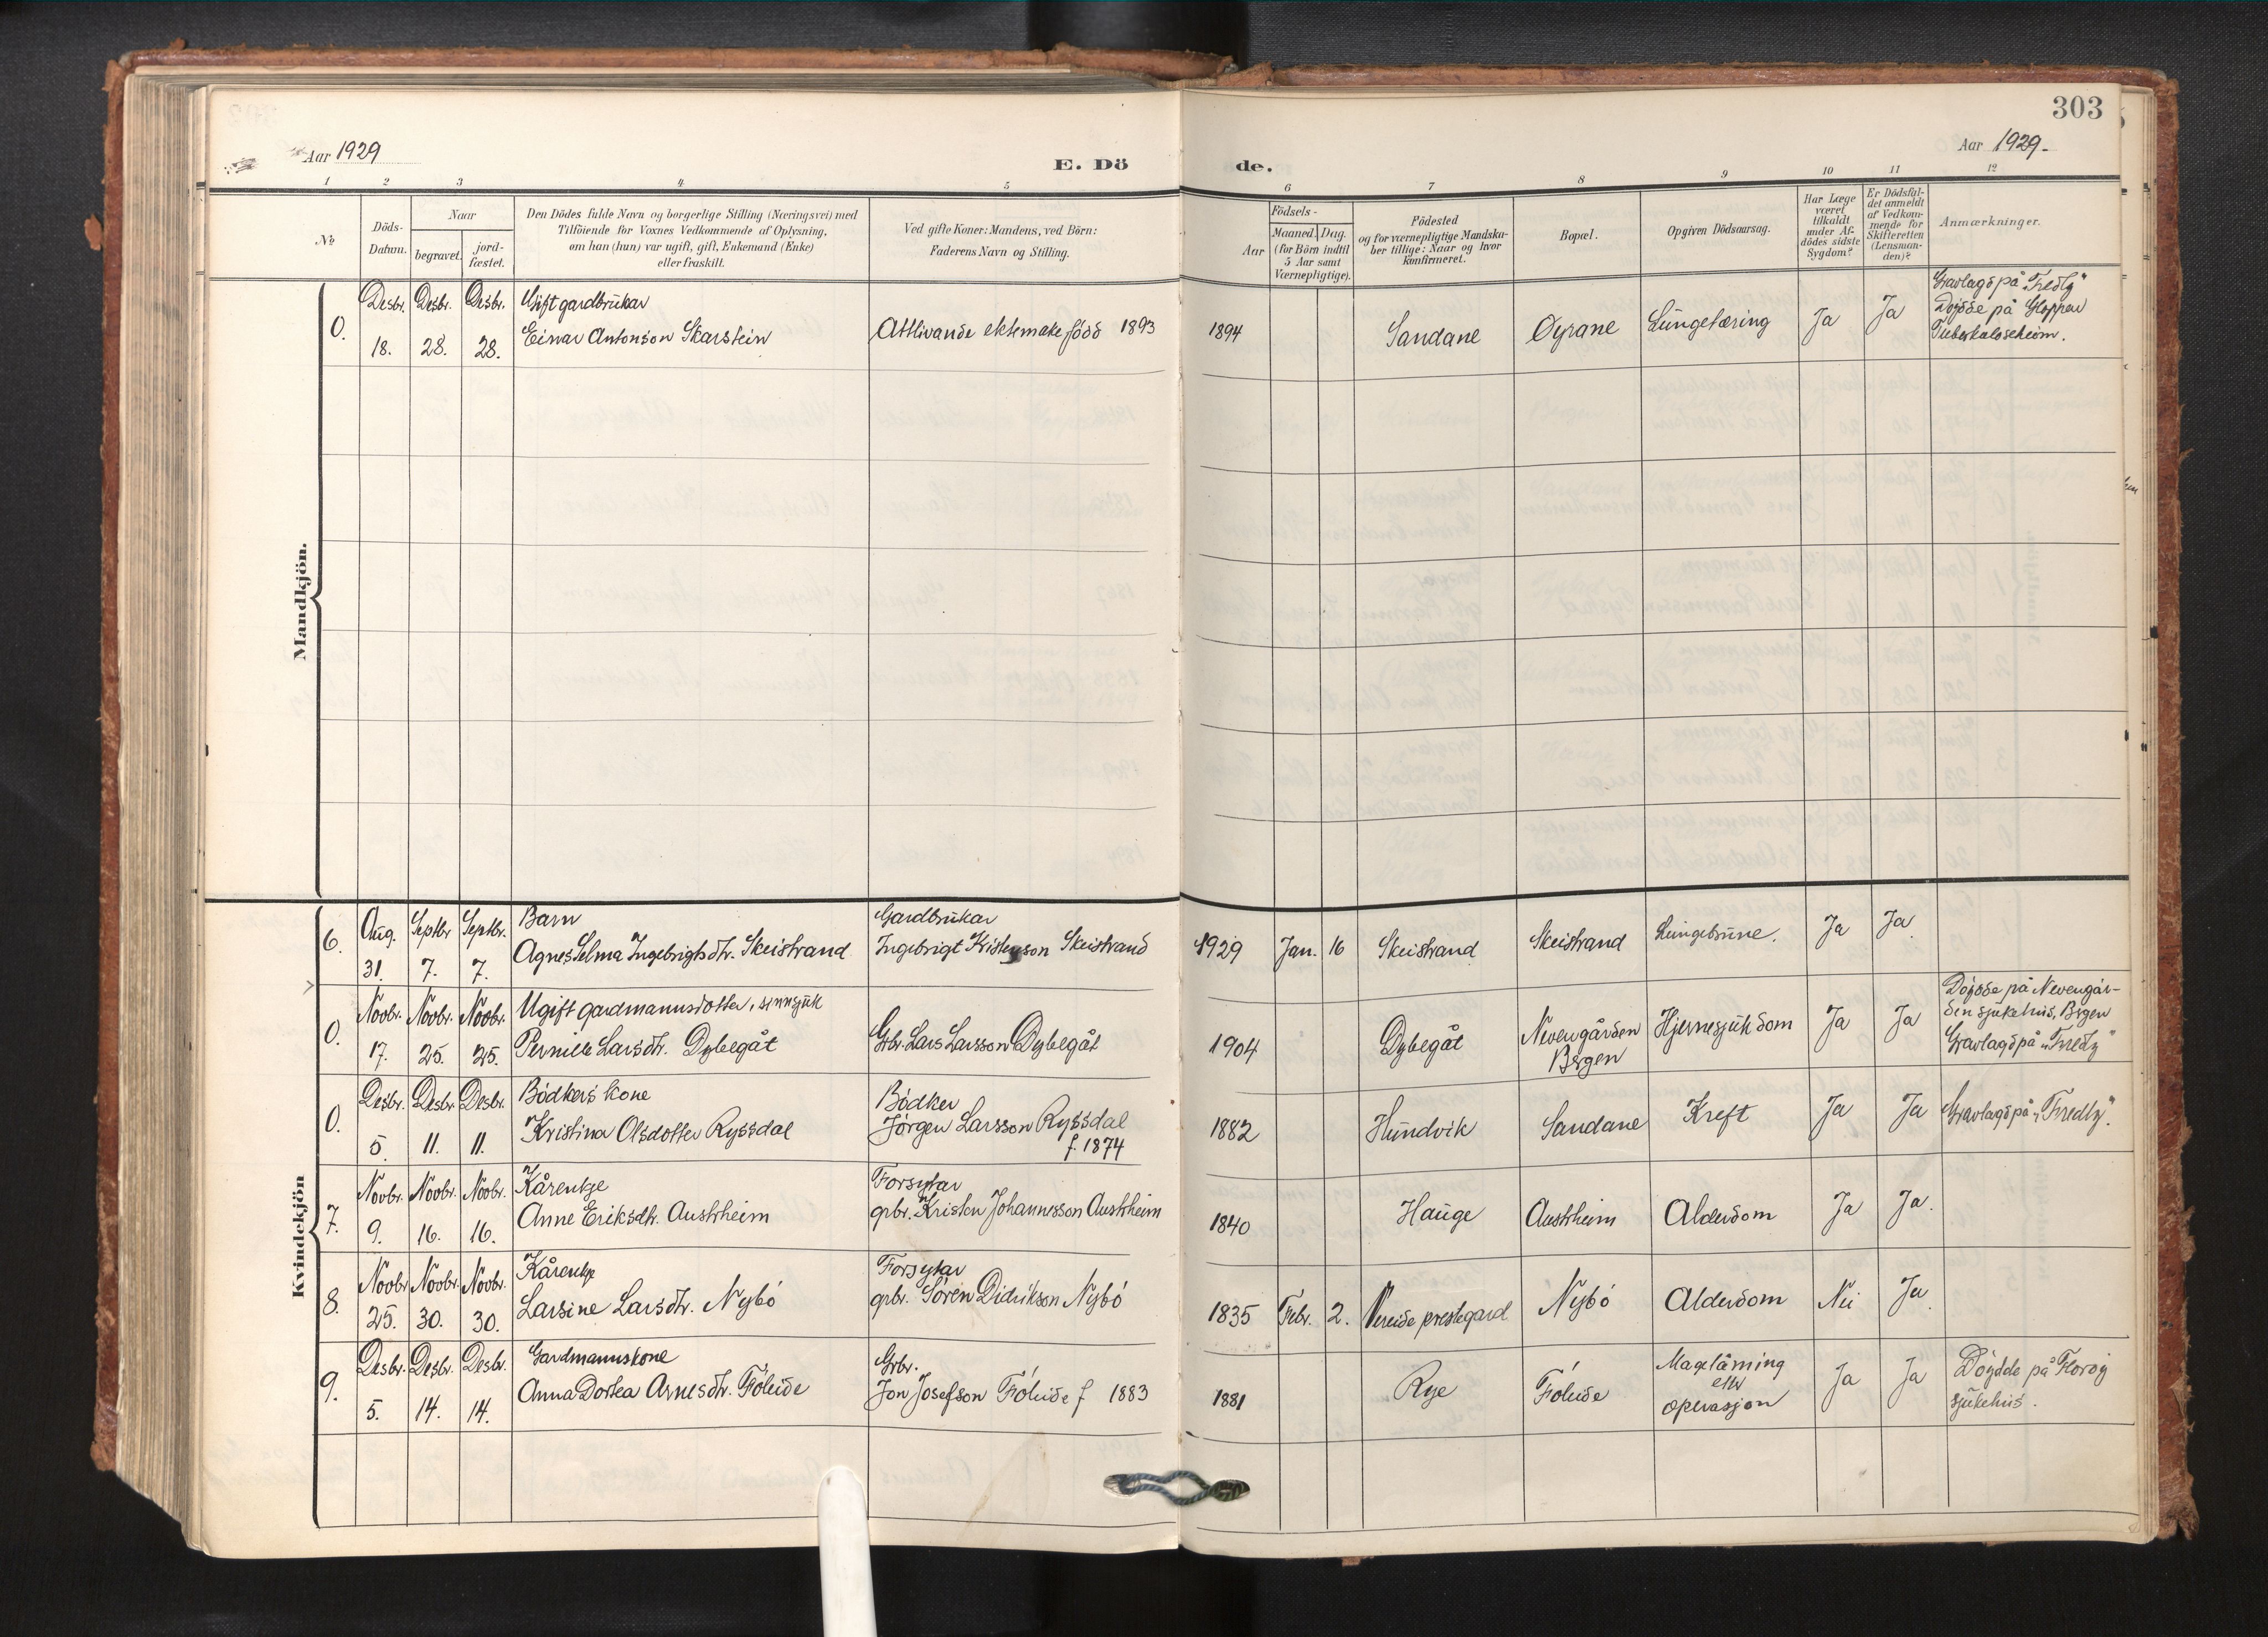 303
Aar 1929
E. Dö
de.
Aar 1929.
1 2 3 4 5 6 7 8 9 10 11 12
№
Döds-
Datum.
Naar
begravet.
jord-
fæstet.
Den Dödes fulde Navn og borgerlige Stilling (Næringsvei) med
Tilföiende for Voxnes Vedkommende af Oplysning,
om han (hun) var ugift, gift, Enkemand (Enke)
eller fraskilt.
Ved gifte Koner: Mandens, ved Börn:
Faderens Navn og Stilling.
Födsels-
Aar
Maaned. Dag.
(for Börn indtil
5 Aar samt
Værnepligtige).
Födested
og for værnepligtige Mandska-
ber tillige: Naar og hvor
konfirmeret.
Bopæl.
Opgiven Dödsaarsag.
Har Læge
været
tilkaldt
under Af-
dödes sidste
Sygdom?
Er Dödsfal-
det anmeldt
af Vedkom-
mende for
Skifteretten
(Lensman-
den)?
Anmærkninger.
Mandkjön.
0.
Desbr. Desbr. Desbr.
18. 28. 28.
Gift gardbrukar
Einar Antonson Skarstein
Attlivande ektemake född 1893
1894
Sandane
Øyrane
Lungetæring
Ja
Ja
Gravlagd på "Fredly"
Døydde på Gloppen
Tuberkuloseheim.
Kvindekjön
6.
Aug. Septbr. Septbr.
31. 7. 7.
Barn
Agnes Selma Ingebrigtsdtr. Skeistrand
Gardbrukar
Ingebrigt Kristenson Skeistrand
1929 Jan. 16
Skeistrand
Skeistrand
Lungebrune.
Ja
Ja
0.
Novbr. Novbr. Novbr.
17. 25. 25.
Ugift gardmannsdotter, sinnsjuk
Pernille Larsdtr. Dybegåt
Grbr. Lars Larsson Dybegåt
1904
Dybegåt
Nevengården
Bergen
Hjernesjukdom
Ja
Ja
Døydde på Nevengår-
den sjukehus, Brgen
Gravlagd på "Fredly"
0.
Desbr. Desbr. Desbr.
5. 11. 11.
Bødkers kone
Kristina Olsdotter Ryssdal
Bødker
Jørgen Larsson Ryssdal
f. 1874
1882
Hundvik
Sandane
Kreft
Ja
Ja
Gravlagd på "Fredly".
7.
Novbr. Novbr. Novbr.
9. 16. 16.
Kårenkje
Anne Eriksdtr. Austrheim
Forsytar
grbr. Kristen Johannesson Austrheim
1840
Hauge
Austrheim
Alderdom
Ja
Ja.
8.
Novbr. Novbr. Novbr.
25. 30. 30.
Kårenkje
Larsine Larsdtr. Nybö
Forsytar
grbr. Sören Didrikson Nybö
1835 Febr. 2.
Vereide prestegard
Nybö
Alderdom
Nei
Ja
9.
Desbr. Desbr. Desbr.
5. 14. 14.
Gardmannskone
Anna Dortea Arnesdtr. Föleide
Grbr.
Jon Josefson Föleide f 1883
1881
Rye
Föleide
etter
operasjon
Ja
Ja
Döydde på Florøy
sjukehus.